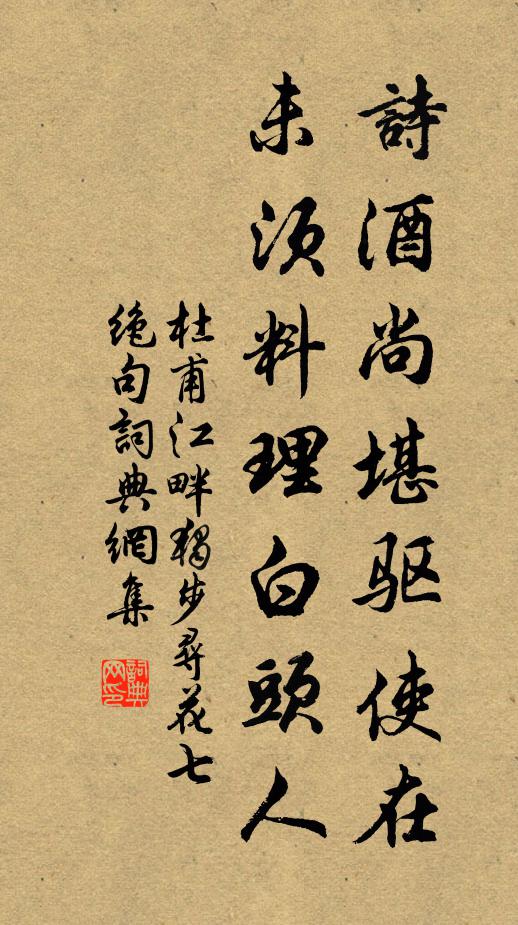 詩酒尚堪驱使在
未须料理白頭人
杜甫江畔獨步尋花七
絶句詞典網集
詞典
网印